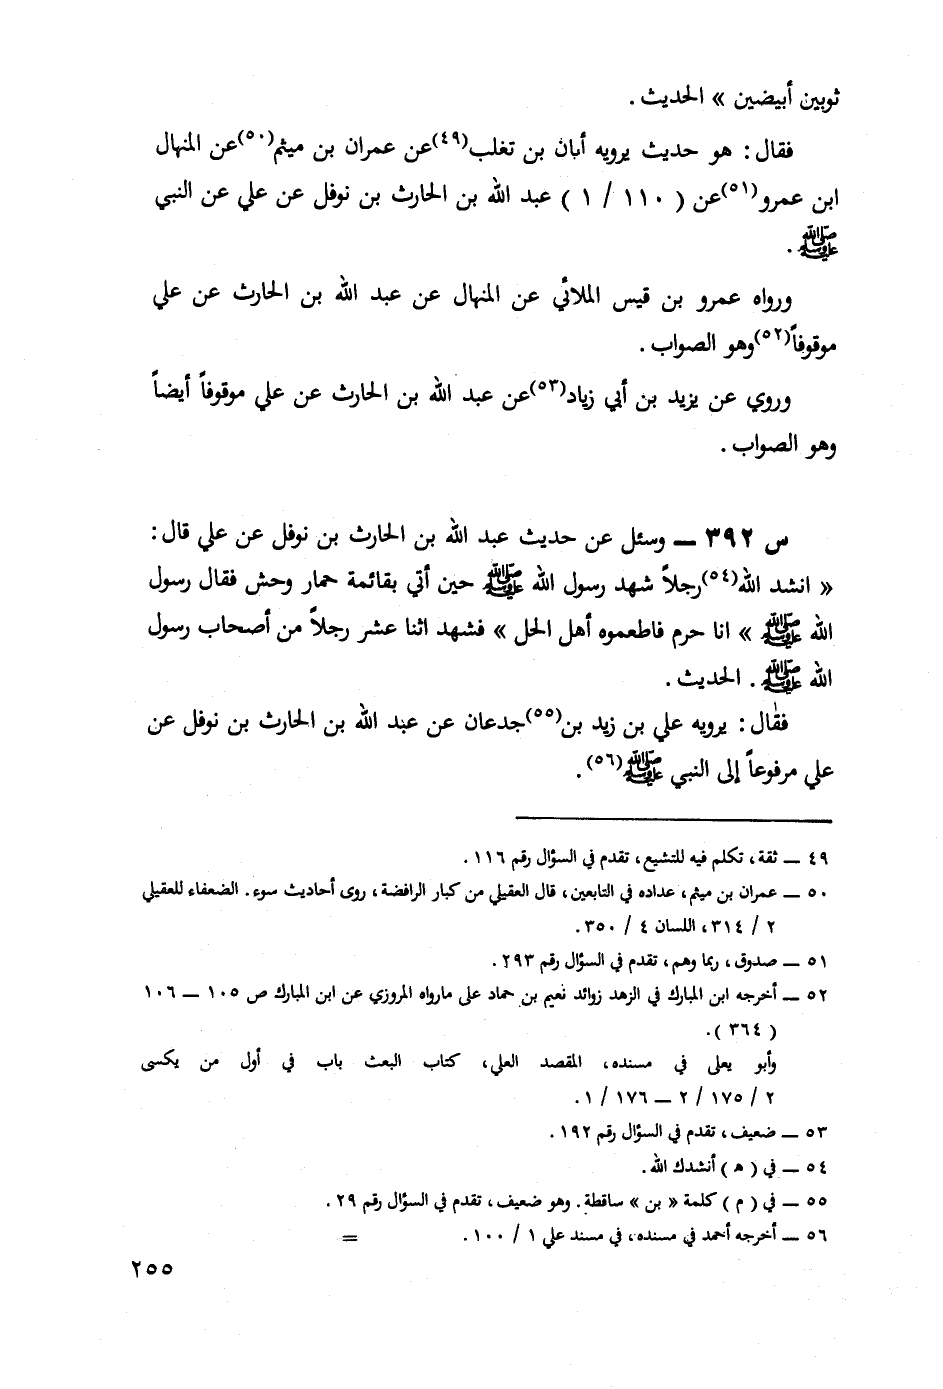 ثوبين أبيضين » الحديث .
فقال : هو حديث يرويه أبان بن تغلب(٤٩)عن عمران بن ميثم(٥٠)عن المنهال
ابن عمرو(٥١)عن ( ١١٠ / ١ ) عبد الله بن الحارث بن نوفل عن علي عن النبي
ﷺ .
ورواه عمرو بن قيس الملائي عن المنهال عن عبد الله بن الحارث عن علي
موقوفاً(٥٢)وهو الصواب .
وروي عن يزيد بن أبي زياد(٥٣)عن عبد الله بن الحارث عن علي موقوفاً أيضاً
وهو الصواب .
س ٣٩٢ ــ وسئل عن حديث عبد الله بن الحارث بن نوفل عن علي قال :
« انشد الله(٥٤)رجلاً شهد رسول الله ﷺ حين أتي بقائمة حمار وحش فقال رسول
الله ﷺ » انا حرم فاطعموه أهل الحل » فشهد اثنا عشر رجلاً من أصحاب رسول
الله ﷺ . الحديث .
فقال : يرويه علي بن زيد بن(٥٥)جدعان عن عبد الله بن الحارث بن نوفل عن
علي مرفوعاً إلى النبي ﷺ(٥٦) .
٤٩ ــ ثقة ، تكلم فيه للتشيع ، تقدم في السؤال رقم ١١٦ .
٥٠ ــ عمران بن ميثم ، عداده في التابعين ، قال العقيلي من كبار الرافضة ، روى أحاديث سوء . الضعفاء للعقيلي
٢ / ٣١٤ ، اللسان ٤ / ٣٥٠ .
٥١ ــ صدوق ، ربما وهم ، تقدم في السؤال رقم ٢٩٣ .
٥٢ ــ أخرجه ابن المبارك في الزهد زوائد نعيم بن حماد على مارواه المروزي عن ابن المبارك ص ١٠٥ ــ ١٠٦
( ٣٦٤ ) .
وأبو يعلى في مسنده ، المقصد العلي ، كتاب البعث باب في أول من يكسى
٢ / ١٧٥ / ٢ ــ ١٧٦ / ١ .
٥٣ ــ ضعيف ، تقدم في السؤال رقم ١٩٢ .
٥٤ ــ في ( هـ ) أنشدك الله .
٥٥ ــ في ( م ) كلمة « بن » ساقطة . وهو ضعيف ، تقدم في السؤال رقم ٢٩ .
٥٦ ــ أخرجه أحمد في مسنده ، في مسند علي ١ / ١٠٠ . =
٢٥٥